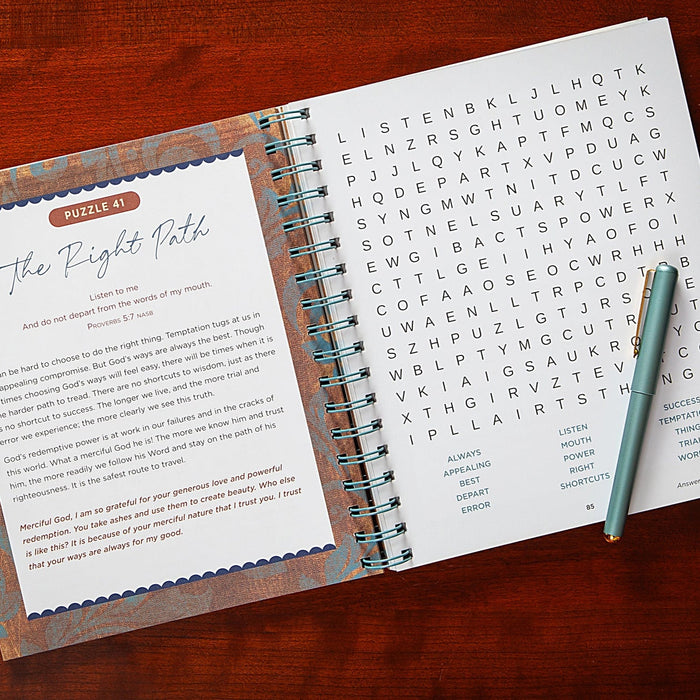 PUZZLE 41
The Right Path
Listen to me
And do not depart from the words of my mouth.
PROVERBS 5:7 NASB
an be hard to choose to do the right thing. Temptation tugs at us in
appealing compromise. But God's ways are always the best. Though
times choosing God's ways will feel easy, there will be times when it is
harder path to tread. There are no shortcuts to wisdom, just as there
s no shortcut to success. The longer we live, and the more trial and
error we experience; the more clearly we see this truth.
God's redemptive power is at work in our failures and in the cracks of
this world. What a merciful God he is! The more we know him and trust
him, the more readily we follow his Word and stay on the path of his
righteousness. It is the safest route to travel.
Merciful God, I am so grateful for your generous love and powerful
redemption. You take ashes and use them to create beauty. Who else
is like this? It is because of your merciful nature that I trust you. I trust
that your ways are always for my good.
L I S T E N B K L J L H Q T K
E L N Z R S G H T U O M E Y K
P J J L Q Y K A P T F M Q C S
H Q D E P A R T X V P D U A G
S Y N G M W T N I T D C U C W
S O T N E L S U A R Y T L F T
E W G I B A C T S P O W E R X
C T T L G E I I H Y A O F O I
C O F A A O S E O C W R H H H
U W A E N L L T R P C D T B
S Z H P U Z L G T J R S E
W B L P T Y M G C U T R
V K I A I G S A U K R C
X T H G I R V Z T E V
I P L L A I R T S T H N G
ALWAYS
APPEALING
BEST
DEPART
ERROR
LISTEN
MOUTH
POWER
RIGHT
SHORTCUTS
SUCCESS
TEMPTATI
THING
TRIA
WOR
85
Answer